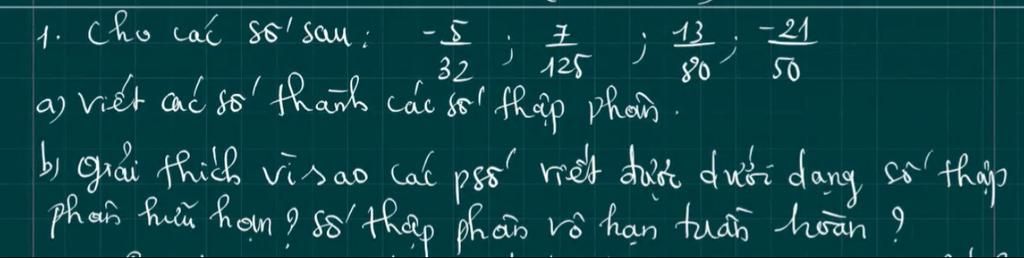 1. Cho các số sau: -5/32 ; 7/125 ; 13/80 ; -21/50
a) viết các số thành các số thập phân.
b) giải thích vì sao các psố viết được dưới dạng số thập
phân hữu hạn? số thập phân vô hạn tuần hoàn?